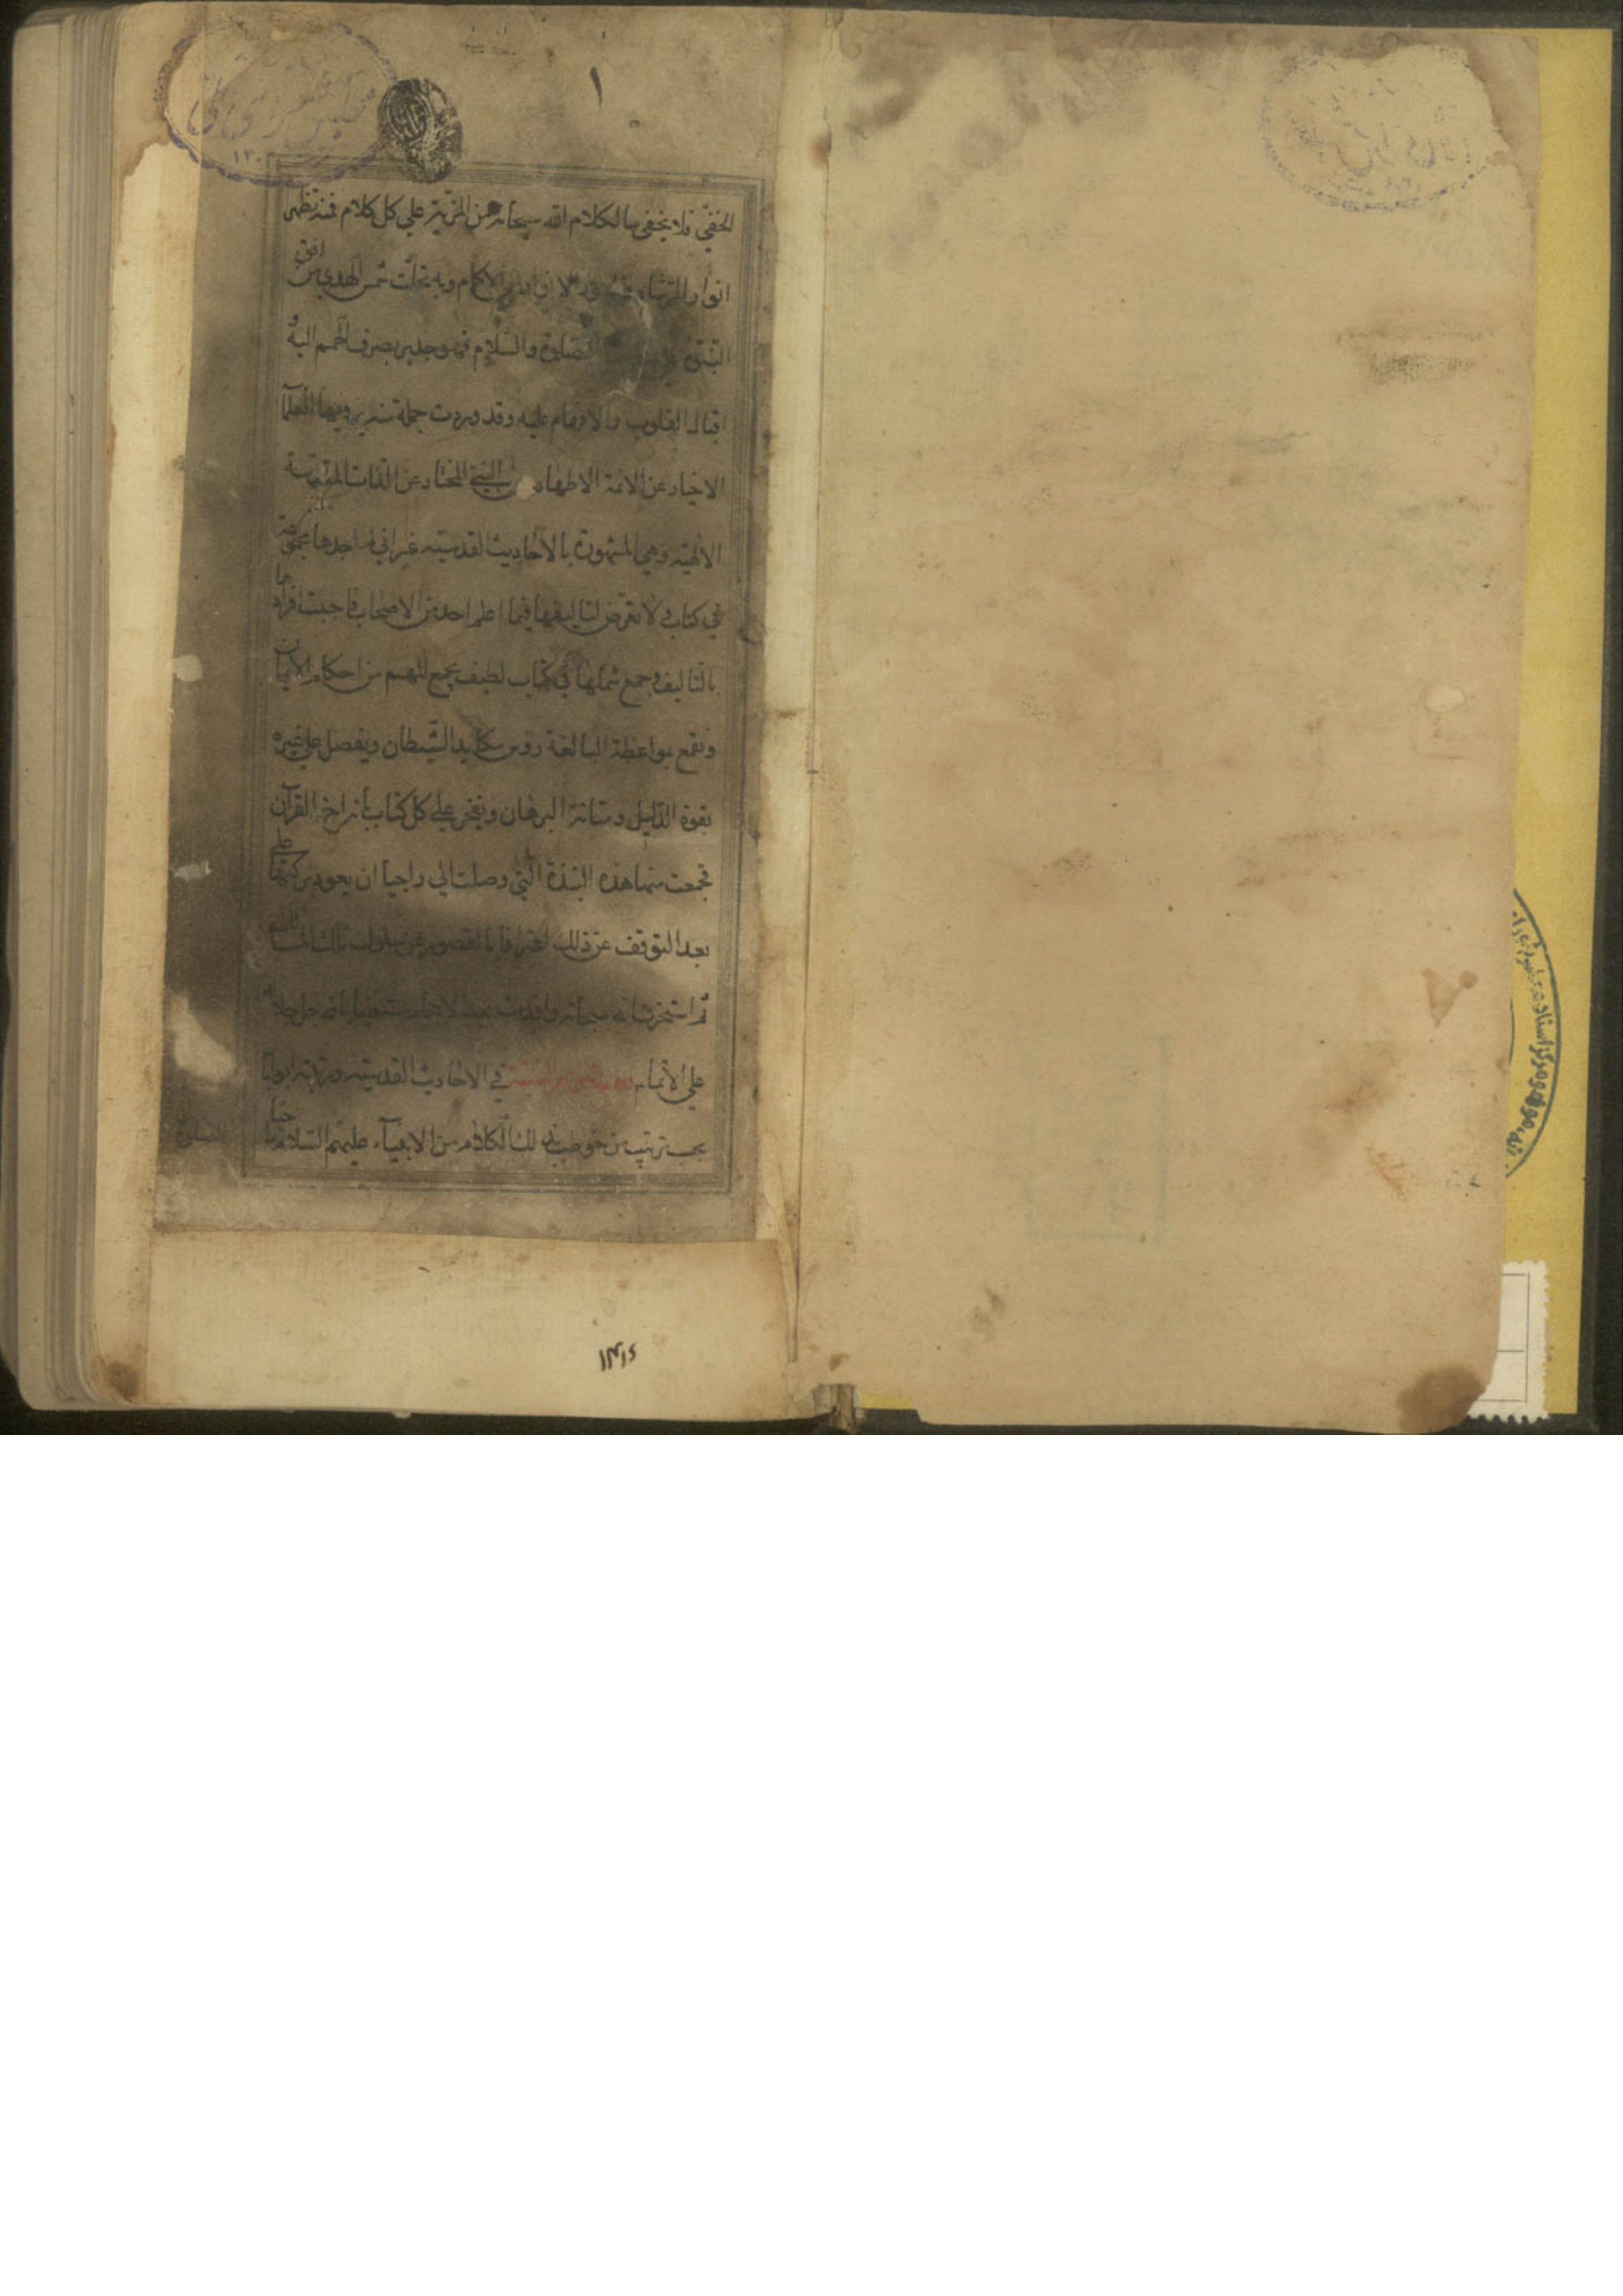 ١
الخفيّ فلا يخفى ما لكلام الله سبحانه من المزية علي كل كلام فمنه تظهر
انوار وبه تجلّت شمس الهدي من افق
النبّوة الصلوة والسّلام فهو جدير بصرف الهمم اليه و
اقبال القلوب والافهام عليه وقد وردت جملة منه يرويها العلمآ
الاخيار عن الائمة الاطهار عن النبيّ المختار عن الذات المقدّسة
الالهيّه وهي المشهورة بالاحاديث القدسيّه غير اني لم اجدها مجموعة
في كتاب ولا تعرّض لتاليفها فيما اعلم احد من الاصحاب فاحببت افرادها
بالتاليف وجمع شملها في كتاب لطيف يجمع المهم من احكام الايمان
ويقمع بمواعظه البالغة روس مكايد الشّيطان ويفصل علي غيره
بقوة الدّليل ومتانة البرهان ويفخر علي كل كتاب بأنه اخو القرآن
فجمعت منها هذه النبذة الّتي وصلت الي راجيا ان يعود بركتها علي
بعد التوقف عن ذلك اعترافا بالقصور عن سلوك تلك المسالك
ثم استخرت الله سبحانه واقدمت بعد الاحجام مستعينا بالله جل جلاله
علي الاتمام في الاحاديث القدسيّه ورتبته ابوابا
بحسب ترتيب من خوطب بذلك الكلام من الانبيآء عليهم السّلام
الصلوة
١٣١٤